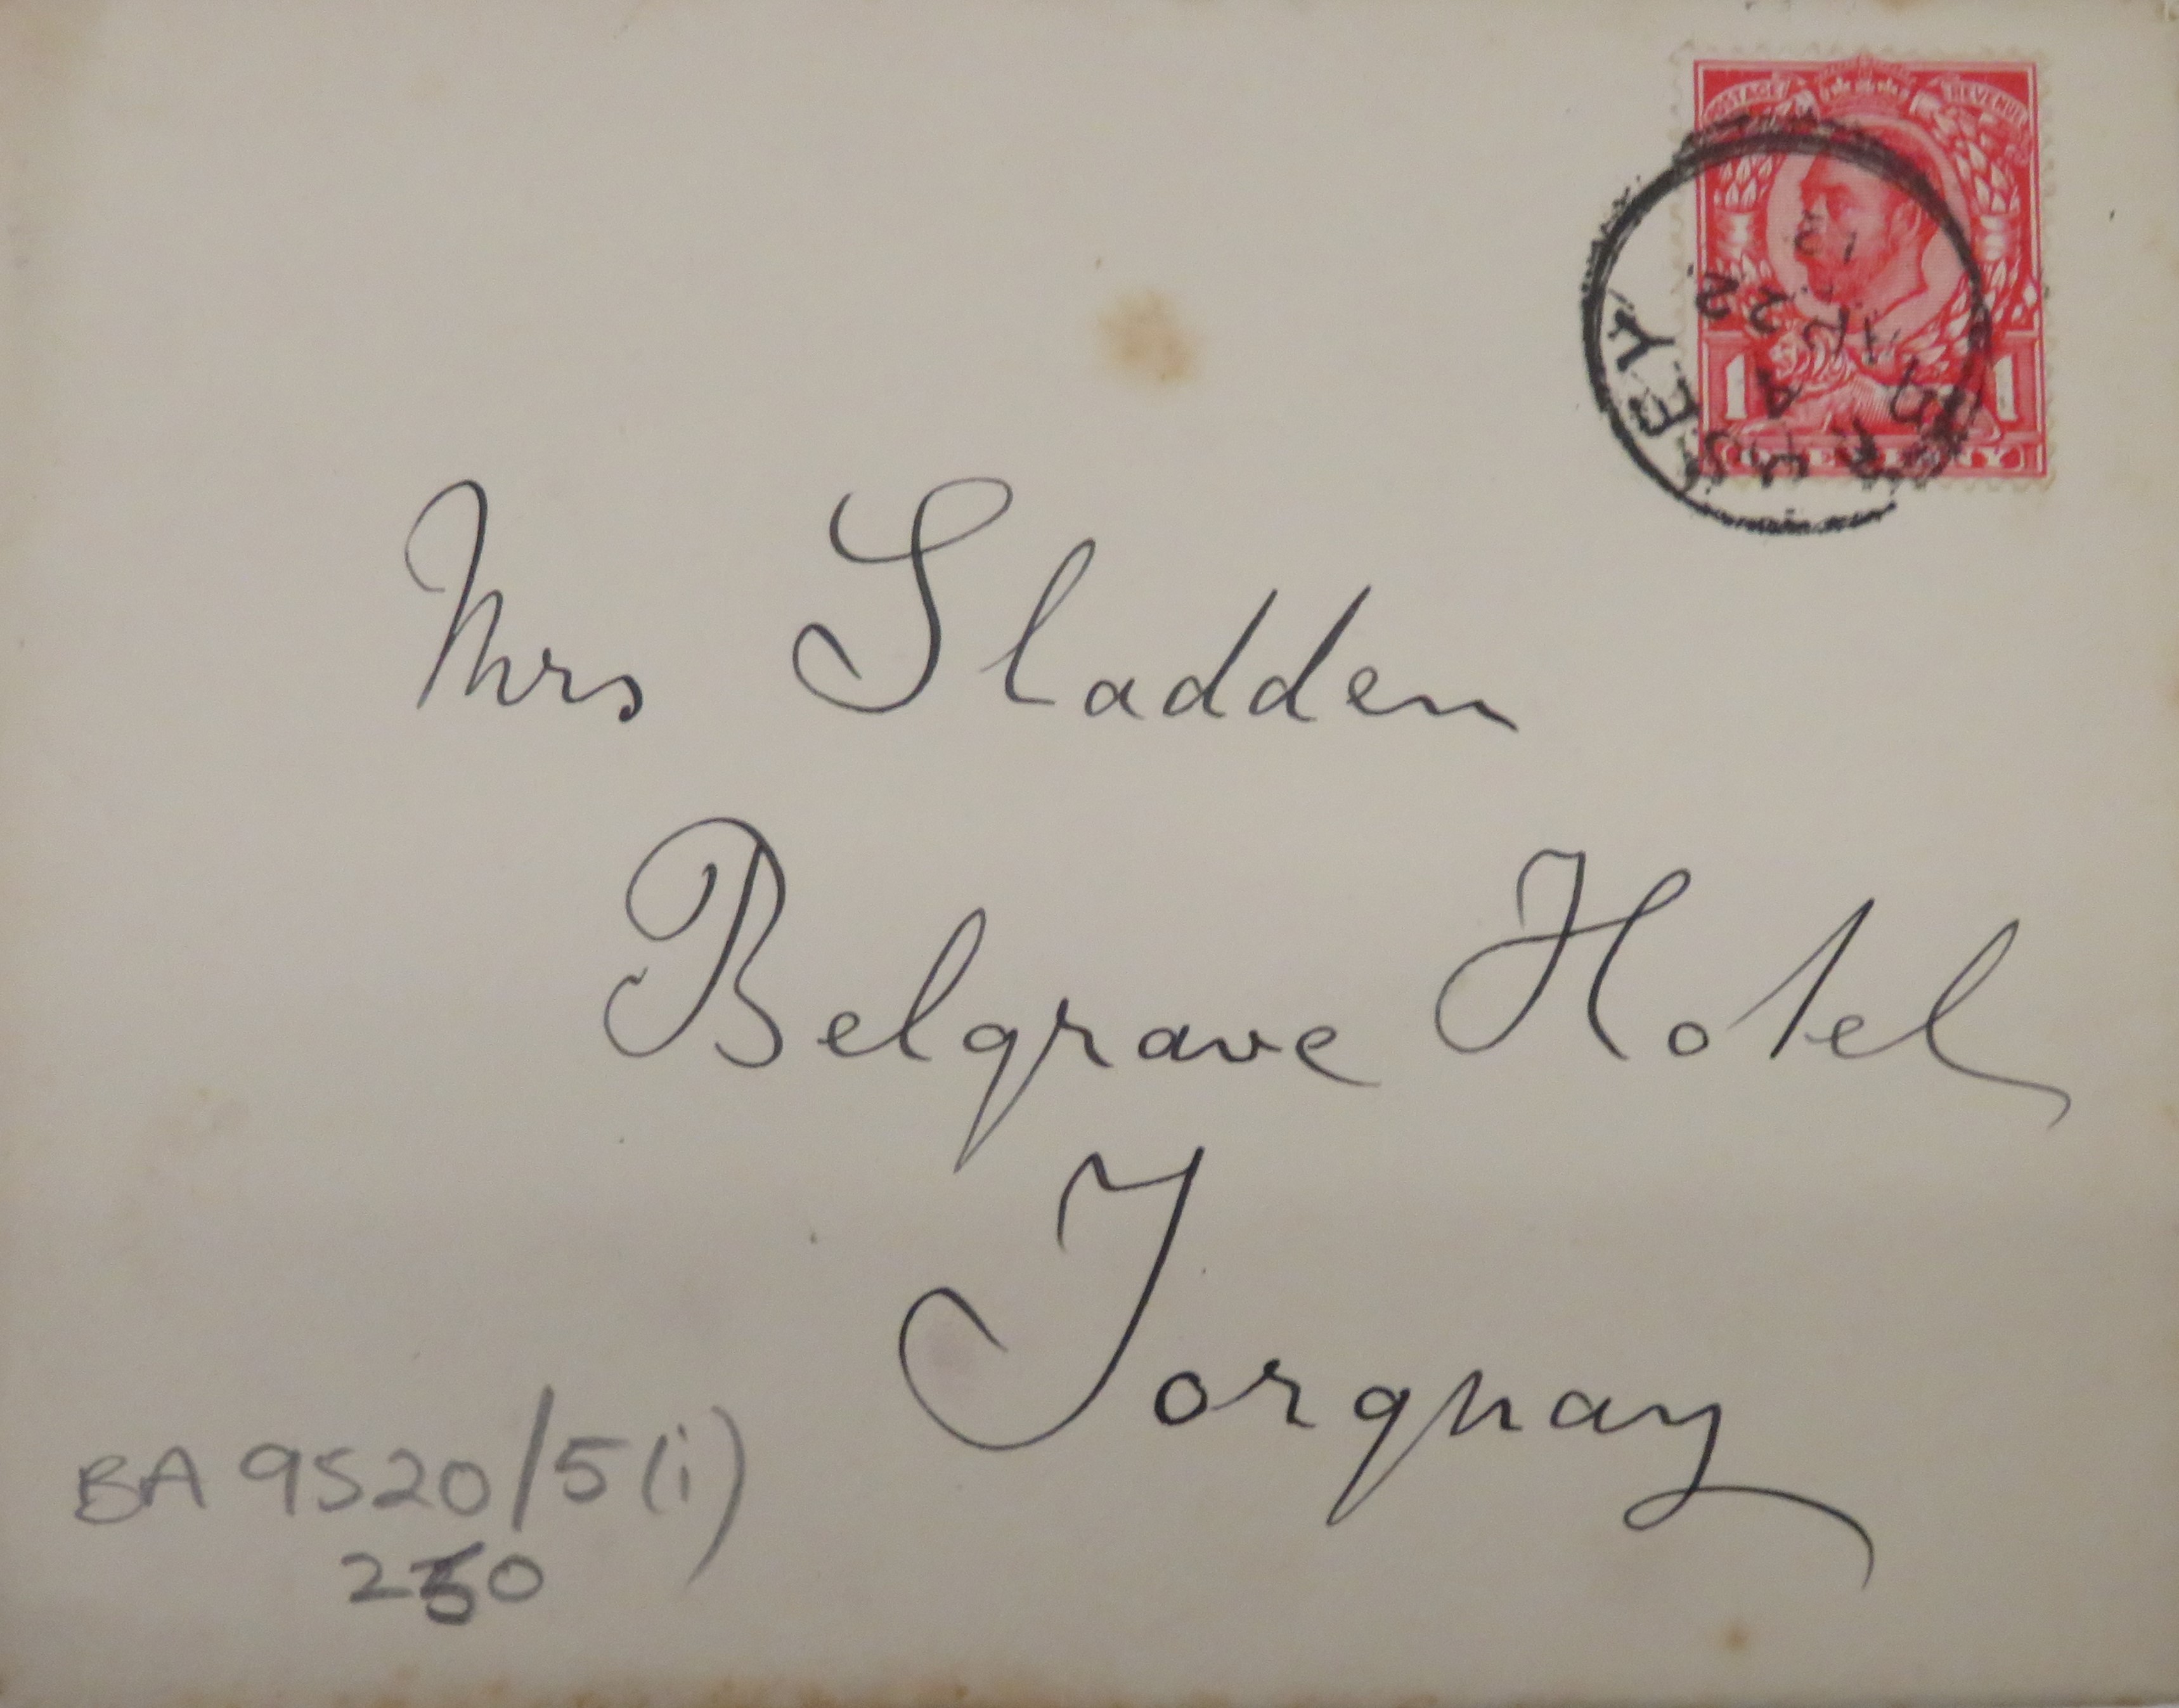 POSTAGE REVENUE
1 1
ONE PENNY
Mrs Sladden
Belgrave Hotel
Torquay
BA 9520/5(i)